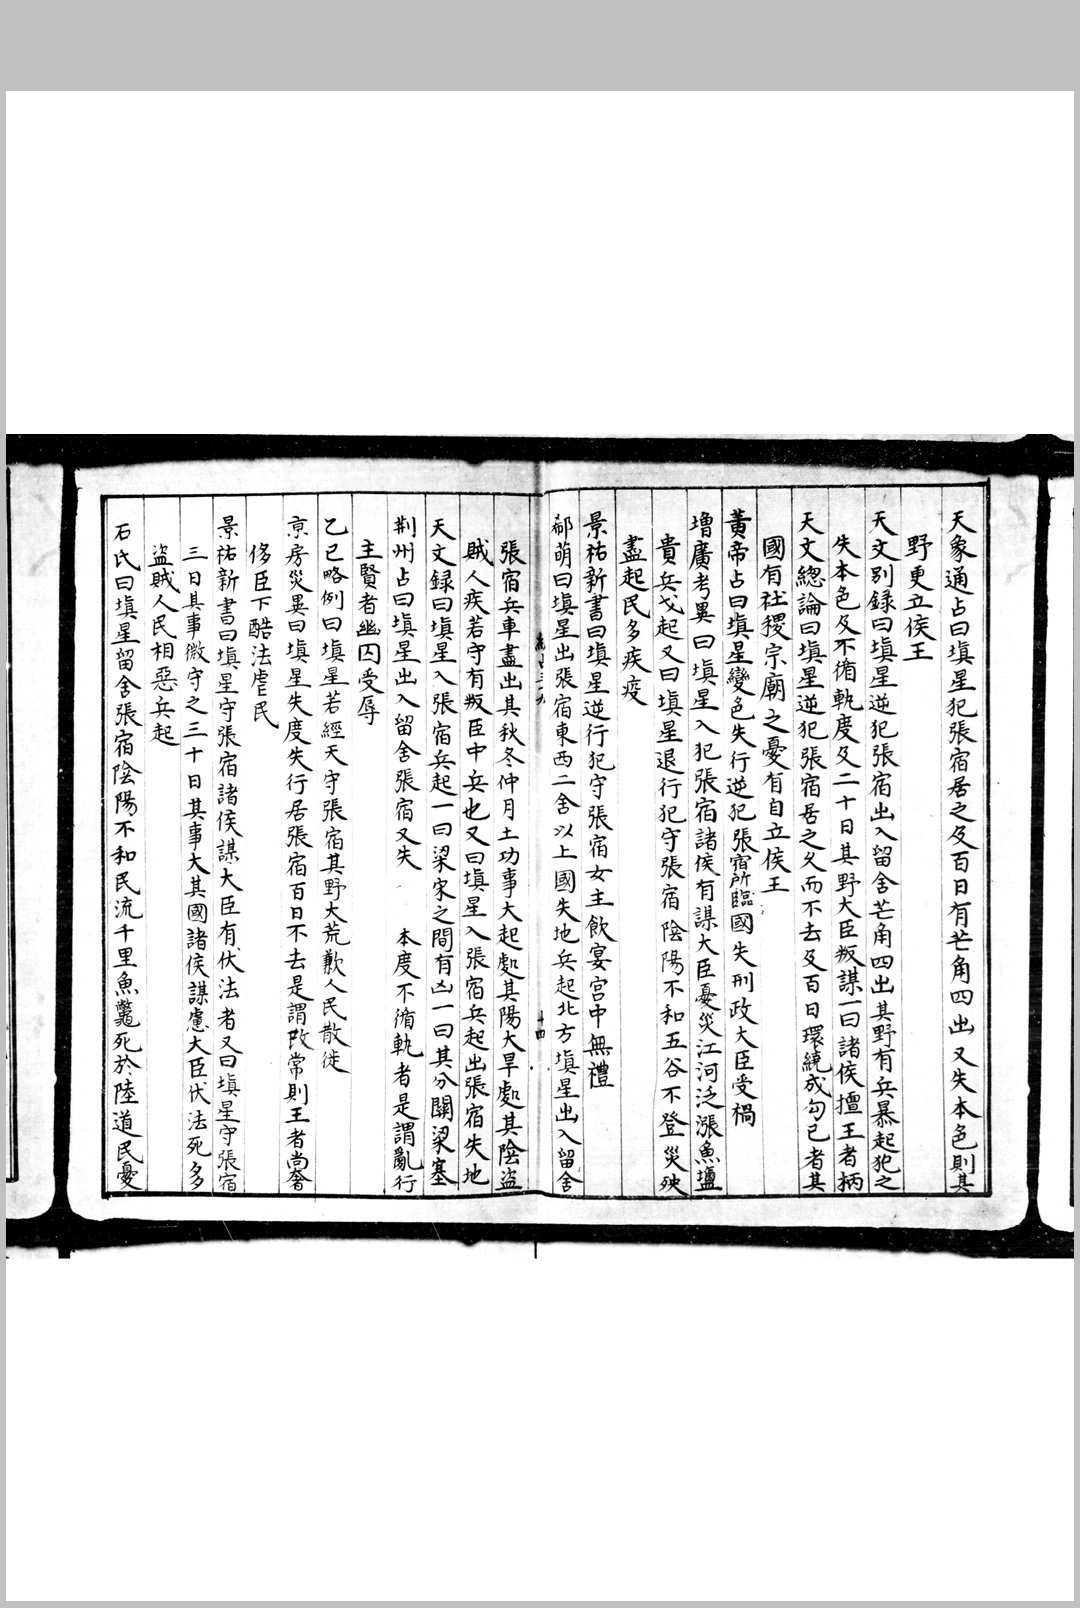 天象通占曰塡星犯張宿居之及百日有芒角四出又失本色則其
野更立侯王
天文别録曰塡星逆犯張宿出入留舍芒角四出其野有兵暴起犯之
失本色及不循軌度及二十日其野大臣叛謀一曰諸侯擅王者柄
天文緫論曰塡星逆犯張宿居之久而不去及百日環繞成勾已者其
國有社稷宗廟之憂有自立侯王
黃帝占曰塡星變色失行逆犯張宿所臨國失刑政大臣受禍
增廣考異曰塡星入犯張宿諸侯有謀大臣憂災江河泛漲魚鹽
貴兵戈起又曰塡星退行犯守張宿陰陽不和五谷不登災殃
盡起民多疾疫
景祐新書曰塡星逆行犯守張宿女主飲宴宮中無禮
郗萌曰塡星出張宿東西二舍以上國失地兵起北方塡星出入留舍
十四
張宿兵車盡出其秋冬仲月土功事大起處其陽大旱處其陰盜
賊人疾若守有叛臣中兵也又曰塡星入張宿兵起出張宿失地
天文録曰塡星入張宿兵起一曰梁宋之間有凶一曰其分關梁塞
荆州占曰塡星出入留舍張宿又失 本度不循軌者是謂亂行
主賢者幽囚受辱
乙巳略例曰塡星若經天守張宿其野大荒歉人民散徙
京房災異曰塡星失度失行居張宿百日不去是謂改常則王者尚奢
侈臣下酷法虐民
景祐新書曰塡星守張宿諸侯謀大臣有伏法者又曰塡星守張宿
三日其事微守之三十日其事大其國諸侯謀慮大臣伏法死多
盜賊人民相惡兵起
石氏曰塡星留舍張宿陰陽不和民流千里魚鼈死於陸道民憂